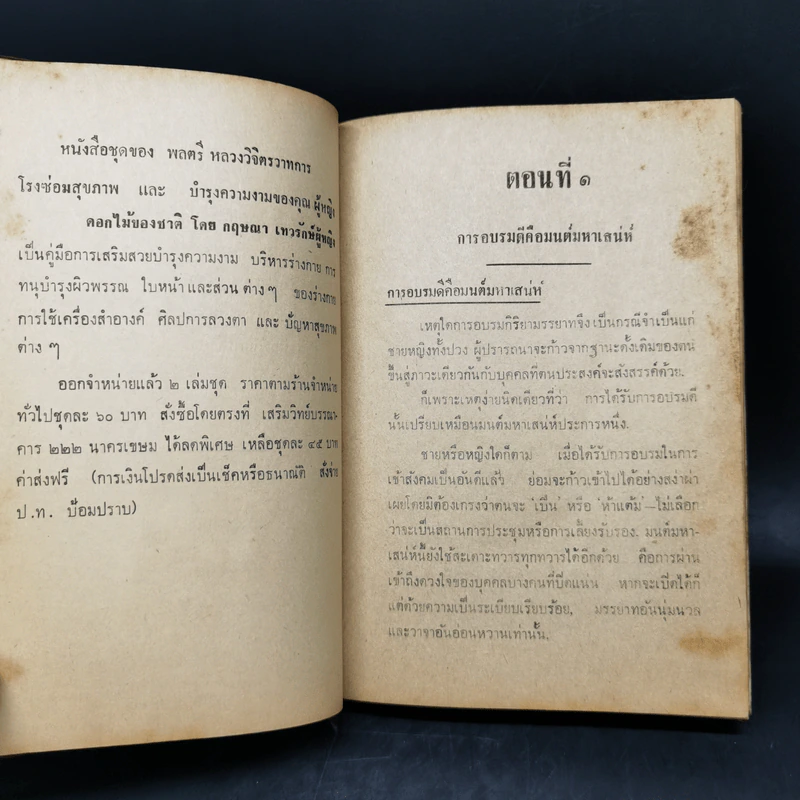 หนังสือชุดของ พลตรี หลวงวิจิตรวาทการ
โรงซ่อมสุขภาพ และ บำรุงความงามของคุณผู้หญิง
ดอกไม้ของชาติ โดย กฤษณา เทวรักษ์ผู้หญิง
เป็นคู่มือการเสริมสวยบำรุงความงาม บริหารร่างกาย การ
ทนุบำรุงผิวพรรณ ใบหน้าและส่วนต่างๆ ของร่างกาย
การใช้เครื่องสำอางค์ ศิลปการลวงตา และ ปัญหาสุขภาพ
ต่าง ๆ
ออกจำหน่ายแล้ว ๒ เล่มชุด ราคาตามร้านจำหน่าย
ทั่วไปชุดละ ๖๐ บาท สั่งซื้อโดยตรงที่ เสริมวิทย์บรรณา-
คาร ๒๒๒ นาครเขษม ได้ลดพิเศษ เหลือชุดละ ๔๕ บาท
ค่าส่งฟรี (การเงินโปรดส่งเป็นเช็คหรือธนาณัติ สั่งจ่าย
ป.ท. ป้อมปราบ)
ตอนที่ ๑
การอบรมดีคือมนต์มหาเสน่ห์
การอบรมดีคือมนต์มหาเสน่ห์
เหตุใดการอบรมกิริยามรรยาทจึงเป็นกรณีจำเป็นแก่
ชายหญิงทั้งปวง ผู้ปรารถนาจะก้าวจากฐานะดั้งเดิมของตน
ขึ้นสู่ภาวะเดียวกันกับบุคคลที่ตนประสงค์จะสังสรรค์ด้วย.
ก็เพราะเหตุง่ายนิดเดียวที่ว่า การได้รับการอบรมดี
นั้นเปรียบเหมือนมนต์มหาเสน่ห์ประการหนึ่ง.
ชายหรือหญิงใดก็ตาม เมื่อได้รับการอบรมในการ
เข้าสังคมเป็นอันดีแล้ว ย่อมจะก้าวเข้าไปได้อย่างสง่าผ่า
เผยโดยมิต้องเกรงว่าตนจะ 'เป็น' หรือ 'ห้าแต้ม'—ไม่เลือก
ว่าจะเป็นสถานการประชุมหรือการเลี้ยงรับรอง. มนต์มหา-
เสน่ห์นี้ยังใช้สะเดาะทวารทุกทวารได้อีกด้วย คือการผ่าน
เข้าถึงดวงใจของบุคคลบางคนที่ปิดแน่น หากจะเปิดได้ก็
แต่ด้วยความเป็นระเบียบเรียบร้อย, มรรยาทอันนุ่มนวล
และวาจาอันอ่อนหวานเท่านั้น.